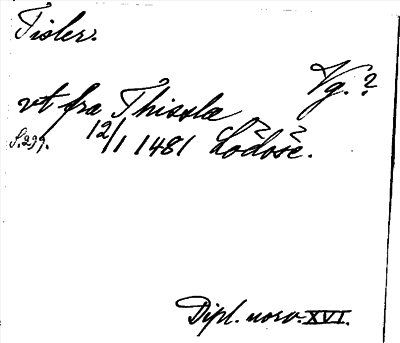 Tisler.
Vg. ?
vt fra Thissla
S. 299. 12/1 1481 Lödöse.
Dipl. norv. XVI.